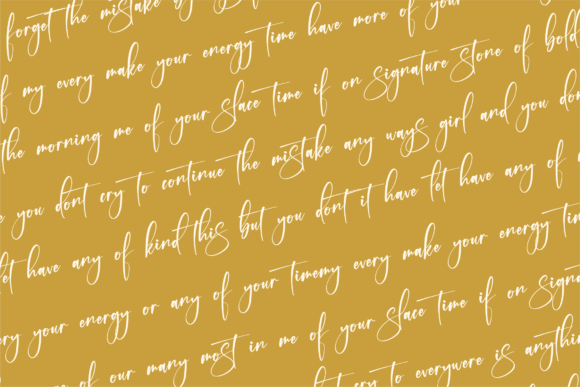 forget the mistake by
my every make your energy time have more of your
the morning me of your slace time if on signature stone of bold
you dont cry to continue the mistake any ways girl and you don
let have any of kind this but you dont it have let have any of
ery your energy or any of your timemy every make your energy tim
of our many most in me of your slace time if on signa
cry to everywere is anythin